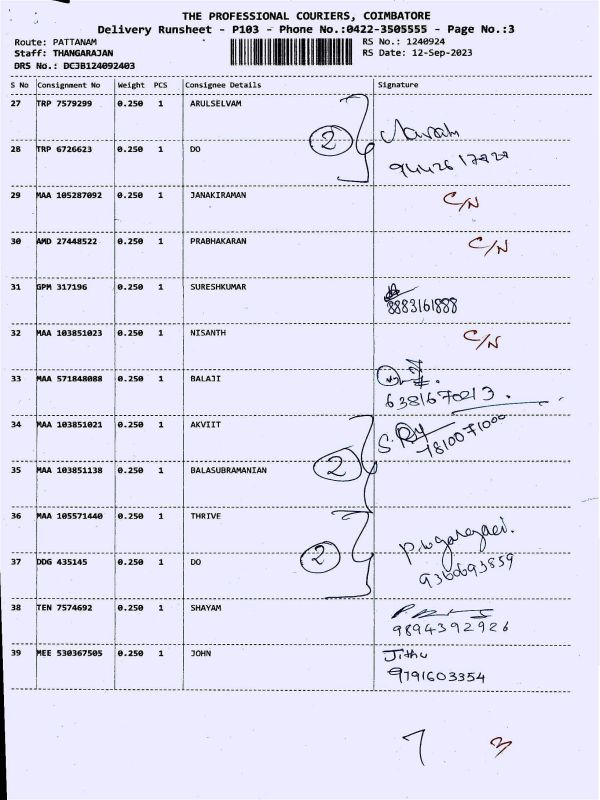 THE PROFESSIONAL COURIERS, COIMBATORE
Delivery Runsheet - P103 - Phone No.:0422-3505555 - Page No.:3
Route: PATTANAM RS No.: 1240924
Staff: THANGARAJAN RS Date: 12-Sep-2023
DRS No.: DCJB124092403
S No Consignment No Weight PCS Consignee Details Signature
27 TRP 7579299 0.250 1 ARULSELVAM
2
28 TRP 6726623 0.250 1 DO
29 MAA 105287092 0.250 1 JANAKIRAMAN C/N
30 AMD 27448522 0.250 1 PRABHAKARAN C/N
31 GPM 317196 0.250 1 SURESHKUMAR
8883161888
32 MAA 103851023 0.250 1 NISANTH C/N
33 MAA 571848088 0.250 1 BALAJI
6381670213.
34 MAA 103851021 0.250 1 AKVIIT
2
35 MAA 103851138 0.250 1 BALASUBRAMANIAN
36 MAA 105571440 0.250 1 THRIVE
2
37 DDG 435145 0.250 1 DO
38 TEN 7574692 0.250 1 SHAYAM
9894392926
39 MEE 530367505 0.250 1 JOHN Jithu
9791603354
7 3